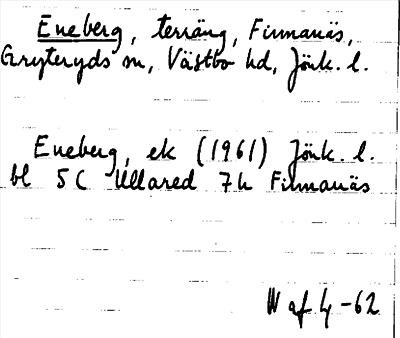 Eneberg, terräng, Finnanäs,
Gryteryds sn, Västbo hd, Jönk. l.
Eneberg, ek (1961) Jönk. l.
bl 5C Ullared 7h Finnanäs
W af 4 -62